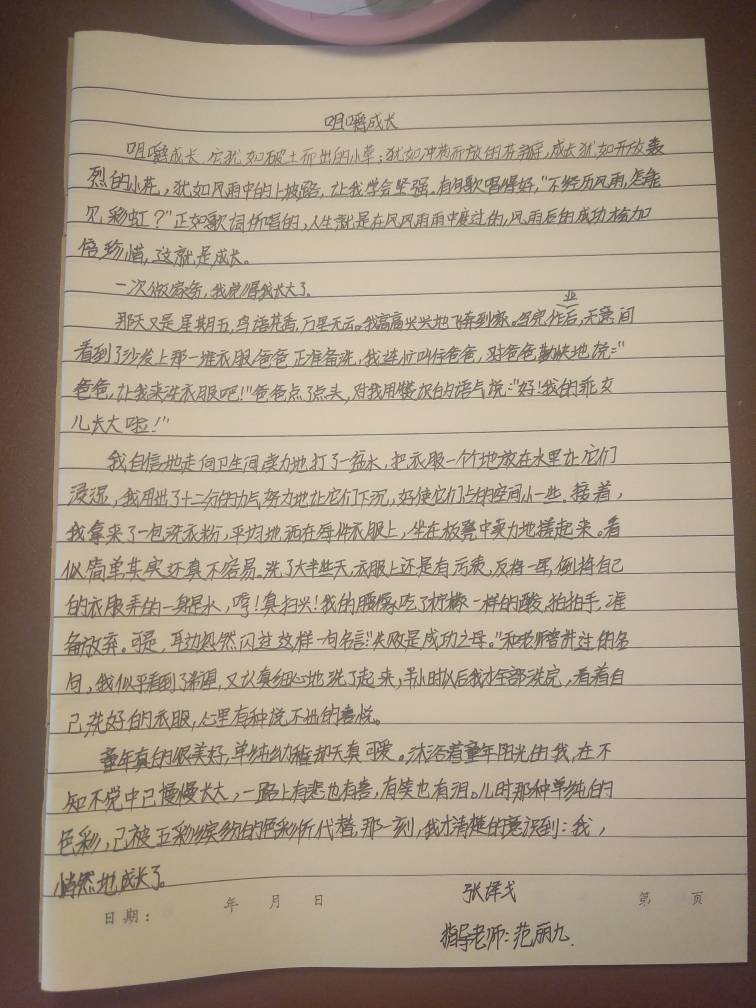 咀嚼成长
咀嚼成长,它犹如破土而出的小草;犹如冲苞而放的花瓣,成长犹如开放轰
烈的小花,犹如风雨中的上坡路,让我学会坚强。有句歌唱得好,"不经历风雨,怎能
见彩虹?"正如歌词所唱的,人生就是在风风雨雨中度过的,风雨后的成功格外加
倍珍惜,这就是成长。
一次做家务,我觉得我长大了。
那天又是星期五,鸟语花香,万里无云。我高高兴兴地飞奔到家。写完作业后,无意间
看到了沙发上那一堆衣服爸爸正准备洗,我连忙叫住爸爸,对爸爸勤快地说:"
爸爸,让我来洗衣服吧!"爸爸点了点头,对我用赞次的语气说:"好!我的乖女
儿长大啦!"
我自信地走向卫生间卖力地打了一盆水,把衣服一个个地放在水里让它们
浸湿,我用出了十二分的力气努力地让它们下沉,好使它们占的空间小一些。接着,
我拿来了一包洗衣粉,平均地洒在每件衣服上,坐在板凳中卖力地搓起来。看
似简单其实还真不容易。洗了大半些天,衣服上还是有污渍,反将一军,倒将自己
的衣服弄的一身是水,哼!真扫兴!我的腰像吃了柠檬一样的酸,拍拍手,准
备放弃。可是,耳边忽然闪过这样一句名言"失败是成功之母。"和老师曾讲过的名
句,我似乎看到了希望,又认真细心地洗了起来,半小时以后我才全部洗完,看着自
己洗好的衣服,心里有种说不出的喜悦。
童年真的很美好,单纯幼稚却天真可爱。沐浴着童年阳光的我,在不
知不觉中已慢慢长大,一路上有悲也有喜,有笑也有泪。儿时那种单纯的
色彩,已被五彩缤纷的色彩所代替,那一刻,我才清楚的意识到:我,
悄然地成长了。
张泽戈
日期: 年 月 日 第 页
指导老师:范丽九.